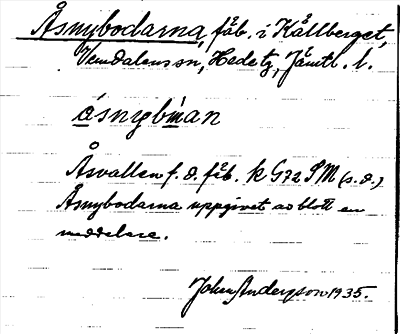 Åsnybodarna, fäb. i Kållberget,
Vemdalens sn, Hede tg, Jämtl. l.
åsnybman
Åsvallen f. d. fäb. k G72 SM (s. d.)
Åsnybodarna uppgivet av blott en
meddelare.
John Anderson 1935.